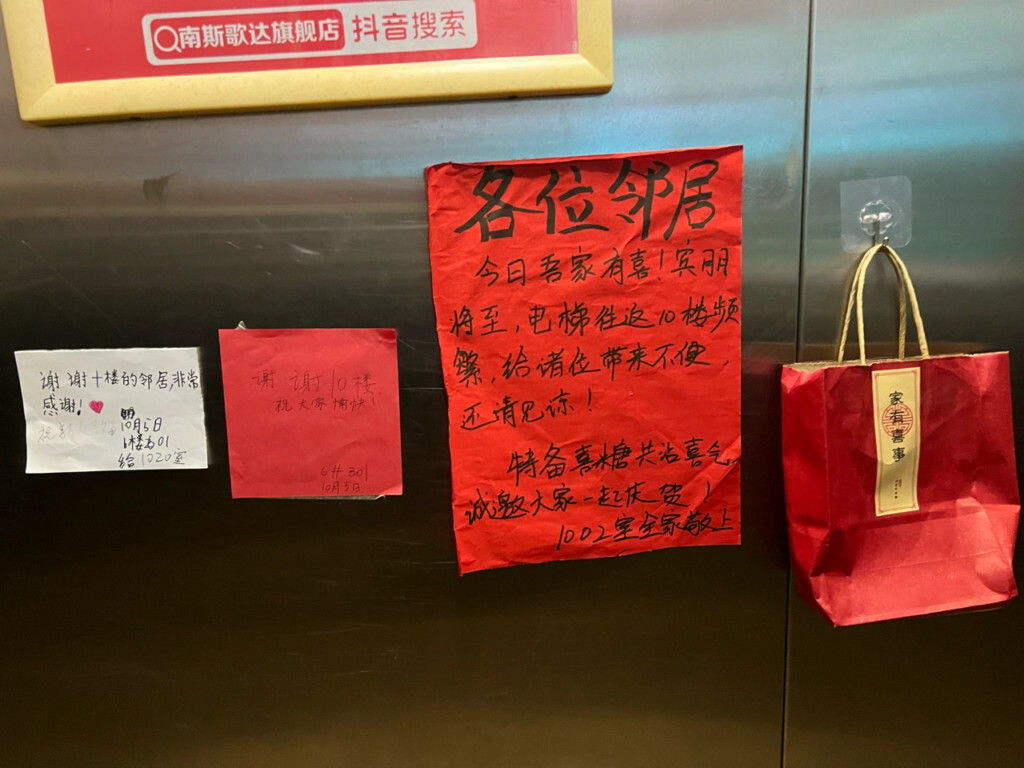 南斯歌达旗舰店 抖音搜索
各位邻居
今日吾家有喜!宾朋
将至,电梯往返10楼频
繁,给诸位带来不便,
还请见凉!
特备喜糖共沾喜气。
诚邀大家一起庆贺!
1002室全家敬上
谢谢十楼的邻居非常
感谢!
10月5日
给1020室
谢谢10楼,
祝大家愉快!
6#301
10月5日
家有喜事